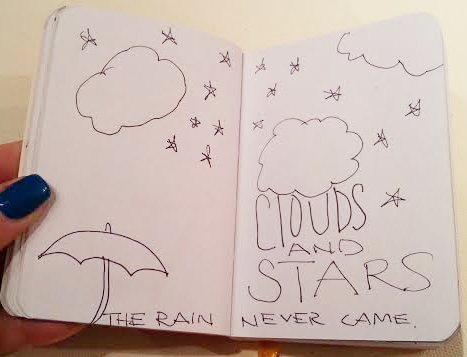 CLOUDS
AND
STARS
THE RAIN NEVER CAME.